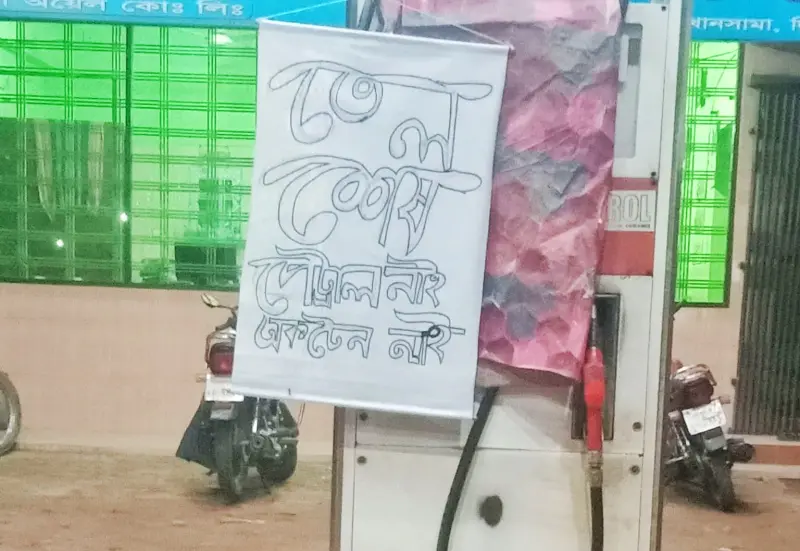 অয়েল কোঃ লিঃ
খানসামা, দি
তেল
শেষ
পেট্রোল নাই
অকটেন নাই
ROL